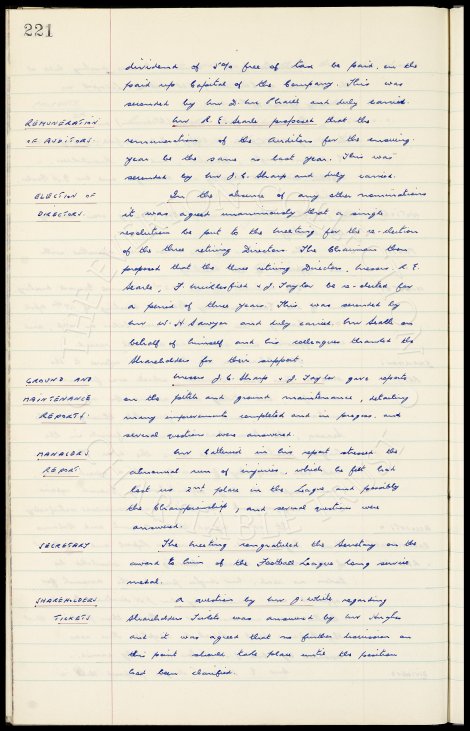 221
dividend of 5% free of tax be paid on the
paid up Capital of the Company. This was
seconded by Mr D. and duly carried.
REMUNERATION Mr R. E. Searle proposed that the
OF AUDITORS. remuneration of the Auditors for the ensuing
year be the same as last year. This was
seconded by Mr J. G. Sharp and duly carried.
ELECTION OF In the absence of any other nominations
DIRECTORS. it was agreed unanimously that a single
resolution be put to the meeting for the re-election
of the three retiring Directors. The Chairman then
proposed that the three retiring Directors, Messrs. R. E.
Searle, F. Micklesfield & J. Taylor be re-elected for
a period of three years. This was seconded by
Mr W. H. Sawyer and duly carried. Mr Searle on
behalf of himself and his colleagues thanked the
Shareholders for their support.
GROUND AND Messrs J. G. Sharp & J. Taylor gave reports
MAINTENANCE on the pitch and ground maintenance, detailing
REPORTS. many improvements completed and in progress and
several questions were answered.
MANAGERS Mr in his report stressed the
REPORT abnormal run of injuries, which he felt had
lost us 2nd place in the League and possibly
the Championship, and several questions were
answered.
SECRETARY The meeting congratulated the Secretary on the
award to him of the Football League long service
medal.
SHAREHOLDERS A question by Mr J. White regarding
TICKETS Shareholders Tickets was answered by Mr Hughes
and it was agreed that no further discussion on
this point should take place until the position
had been clarified.